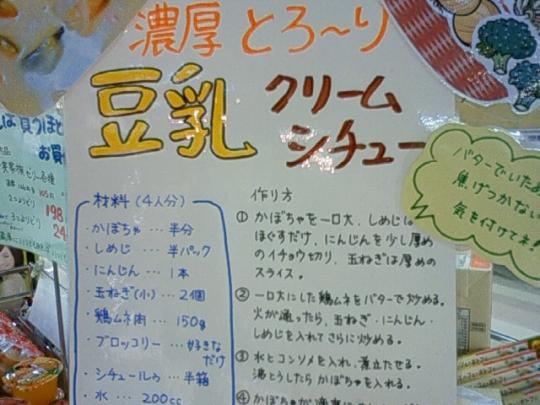 濃厚 とろ～り
豆乳 クリーム
シチュー
材料(4人分)
・かぼちゃ … 半分
・しめじ … 半パック
・にんじん … 1本
・玉ねぎ(小) … 2個
・鶏ムネ肉 … 150g
・ブロッコリー … 好きな
だけ
・シチュールゥ … 半箱
・水 … 200cc
作り方
① かぼちゃを一口大、しめじは
ほぐすだけ、にんじんを少し厚め
のイチョウ切り、玉ねぎは厚めの
スライス。
② 一口大にした鶏ムネをバターで炒める。
火が通ったら、玉ねぎ・にんじん・
しめじを入れてさらに炒める。
③ 水とコンソメを入れ、煮立たせる。
沸とうしたらかぼちゃを入れる。
④ かぼちゃが
バターでいため
焦げつかない
気を付けてネ!
198